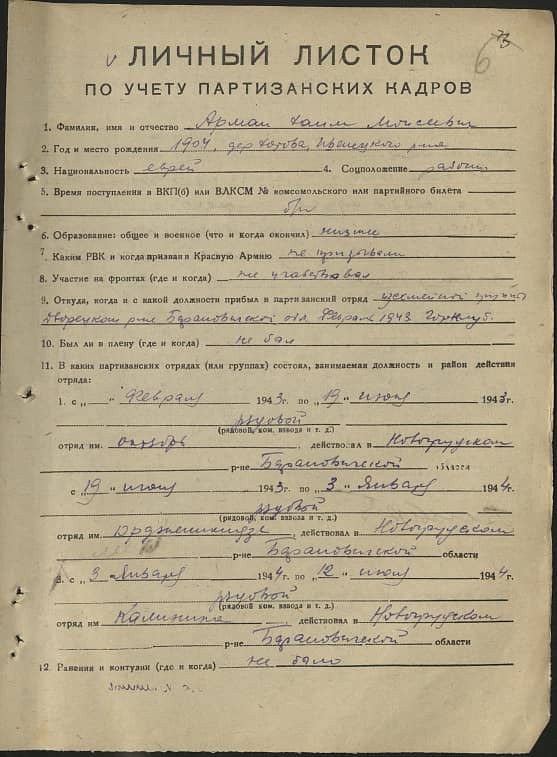 6
ЛИЧНЫЙ ЛИСТОК
ПО УЧЕТУ ПАРТИЗАНСКИХ КАДРОВ
1. Фамилия, имя и отчество Арман Хаим
2. Год и место рождения 1904, дер. Ивенецкого р-на
3. Национальность еврей 4. Соцположение рабочий
5. Время поступления в ВКП(б) или ВЛКСМ № комсомольского или партийного билета
б/п
6. Образование: общее и военное (что и когда окончил) низшее
7. Каким РВК и когда призван в Красную Армию не призывали
8. Участие на фронтах (где и когда) не участвовал
9. Откуда, когда и с какой должности прибыл в партизанский отряд из семейной группы
Дворецком р-не Барановичской обл. Февраль 1943
10. Был ли в плену (где и когда) не был
11. В каких партизанских отрядах (или группах) состоял, занимаемая должность и район действия
отряда:
1. с „ “ Февраля 1943 г. по „19“ июня 1943г.
рядовой
(рядовой, ком. взвода и т. д.)
отряд им. октябрь, действовал в Новогрудском
р-не Барановичской области
с „19“ июня 1943г. по „3“ Января 1944г.
рядовой
(рядовой, ком. взвода и т. д.)
отряд им. Орджоникидзе, действовал в Новогрудском
р-не Барановичской области
3. с „3“ Января 1944г. по „12“ июля 1944г.
рядовой
(рядовой, ком. взвода и т. д.)
отряд им Калинина действовал в Новогрудском
р-не Барановичской области
12. Ранения и контузии (где и когда) не было